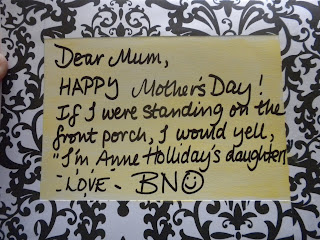 Dear Mum,
HAPPY Mother's Day!
If I were standing on the
front porch, I would yell,
"I'm Anne Holliday's daughter!"
- LOVE - BNO